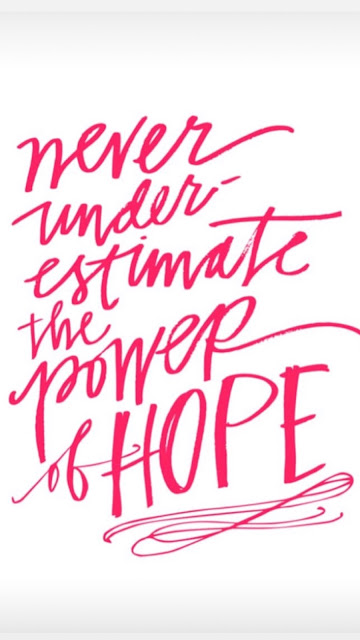 never
under-
estimate
the
power
of HOPE